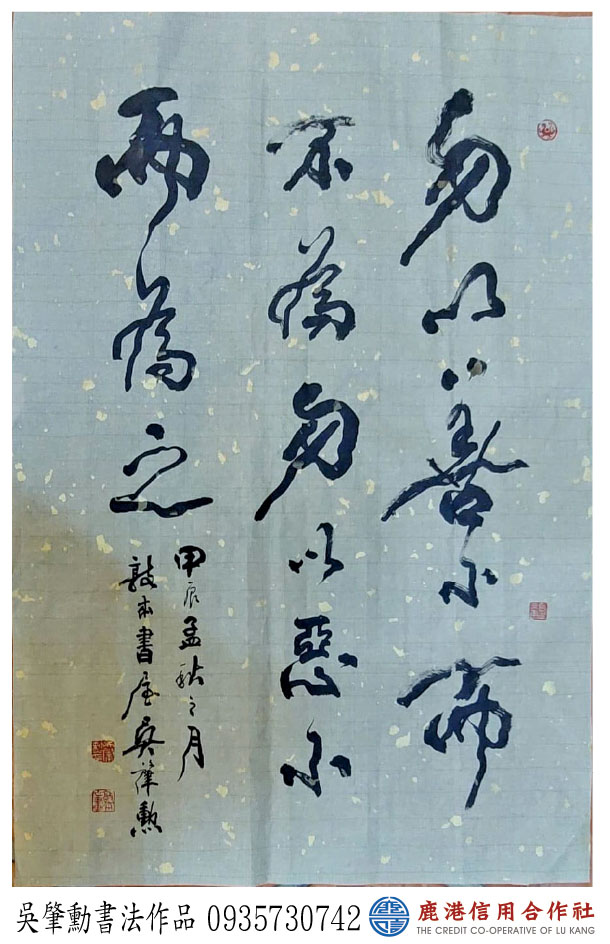 勿以善小而
不為勿以惡小
而為之
甲辰孟秋之月
敦本書屋吳肇勳
吳肇勳書法作品 0935730742
鹿港信用合作社
THE CREDIT CO-OPERATIVE OF LU KANG